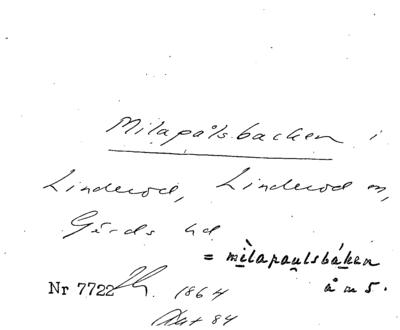 Milapålsbacken i
Linderod, Linderod sn,
Gärds hd
= mìlapaulsbáken
Nr 7722 1864 å m s.
84